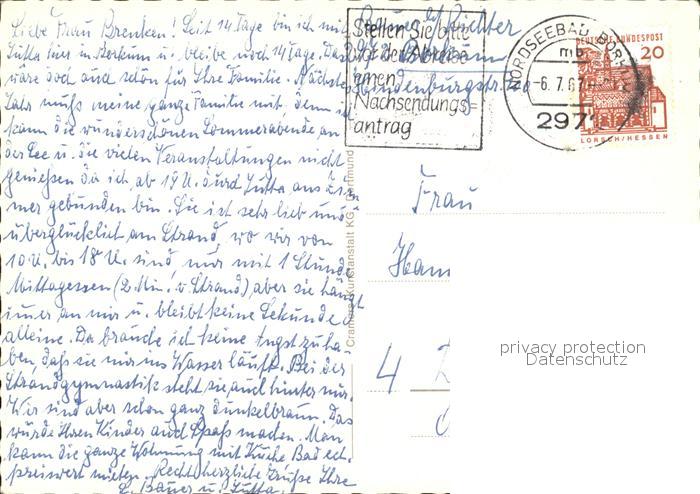 Liebe Frau Brenken! Seit 14 Tage bin ich mit
Jutta hier in Borkum u. bleibe noch 14 Tage. Das
wäre doch auch schön für Ihre Familie. Nächstes
Jahr muß meine ganze Familie mit, denn so
kann die wunderschönen Sommerabende an
der See u. die vielen Veranstaltungen nicht
genießen da ich ab 19 U. durch Jutta ans Zim-
mer gebunden bin. Sie ist sehr lieb und
überglücklich am Strand, wo wir von
10 U. bis 18 U. sind, nur mit 1 Stunde
Mittagessen (2 Min. v. Strand), aber sie hängt
immer an mir u. bleibt keine Sekunde
alleine. Da brauche ich keine Angst zu ha-
ben, daß sie mir ins Wasser läuft. Bei der
Strandgymnastik steht sie auch hinter mir.
Wir sind aber schon ganz dunkelbraun. Das
würde Ihren Kinder auch Spaß machen. Man
kann die ganze Wohnung mit Küche Bad ect.
preiswert mieten. Recht herzliche Grüße Ihre
L. Bauer u. Jutta.
Richter
Stellen Sie bitte
vor der Abreise
einen
Nachsendungs=
antrag
NORDSEEBAD BORKUM
mb
-6.7.67
2972
DEUTSCHE BUNDESPOST
20
LORSCH/HESSEN
Cramers Kunstanstalt KG, Dortmund
Frau
Ham
4
privacy protection
Datenschutz